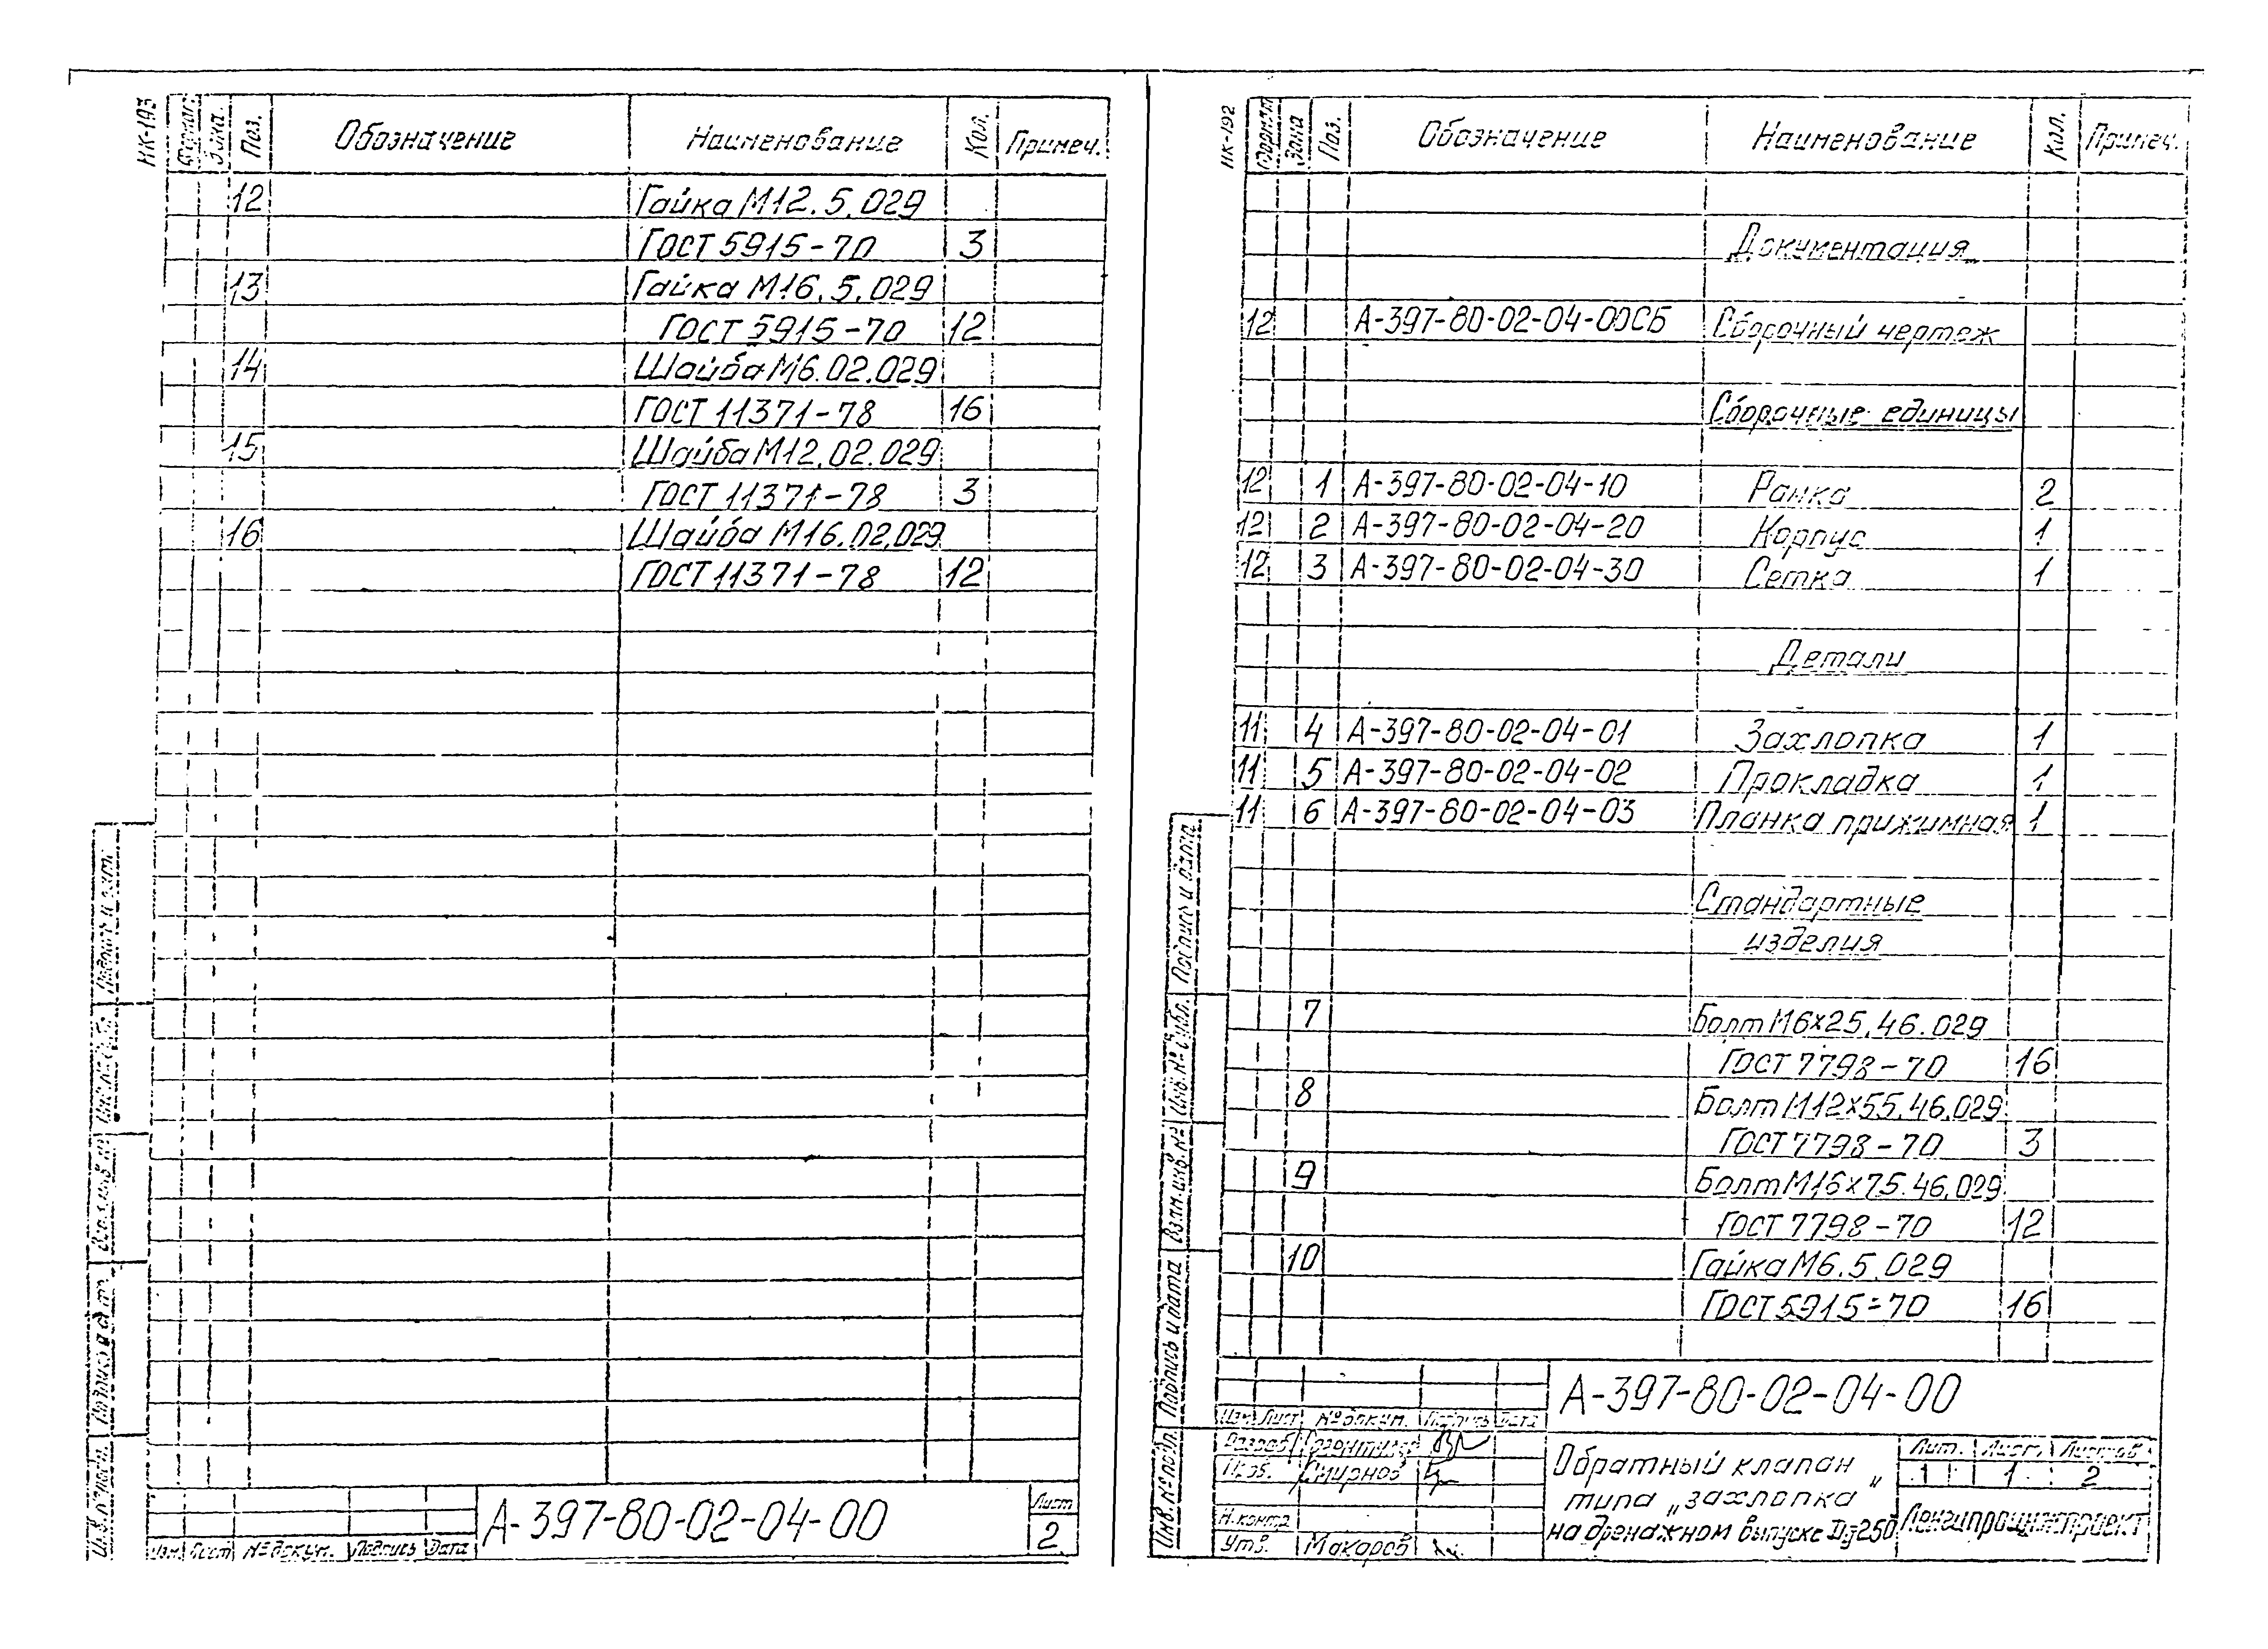 НК-193
Формат Зона Поз. Обозначение Наименование Кол. Примеч.
12 Гайка М12.5.029
ГОСТ 5915-70 3
13 Гайка М16.5.029
ГОСТ 5915-70 12
14 Шайба М6.02.029
ГОСТ 11371-78 16
15 Шайба М12.02.029
ГОСТ 11371-78 3
16 Шайба М16.02.029
ГОСТ 11371-78 12
Изм. Лист № докум. Подпись Дата
А-397-80-02-04-00
Лист
2
НК-192
Формат Зона Поз. Обозначение Наименование Кол. Примеч.
Документация
12 А-397-80-02-04-00СБ Сборочный чертеж
Сборочные единицы
12 1 А-397-80-02-04-10 Рамка 2
12 2 А-397-80-02-04-20 Корпус 1
12 3 А-397-80-02-04-30 Сетка 1
Детали
11 4 А-397-80-02-04-01 Захлопка 1
11 5 А-397-80-02-04-02 Прокладка 1
11 6 А-397-80-02-04-03 Планка прижимная 1
Стандартные
изделия
7 Болт М6х25.46.029
ГОСТ 7798-70 16
8 Болт М12х55.46.029
ГОСТ 7798-70 3
9 Болт М16х75.46.029
ГОСТ 7798-70 12
10 Гайка М6.5.029
ГОСТ 5915-70 16
Инв. № подл. Подпись и дата Взам. инв. № Инв. № дубл. Подпись и дата
А-397-80-02-04-00
Изм. Лист № докум. Подпись Дата
Разраб.
Пров. Смирнов
Н. контр.
Утв. Макаров
Обратный клапан
типа „захлопка"
на дренажном выпуске Dу250
Лит. Лист Листов
1 1 2
Ленгипроинжпроект